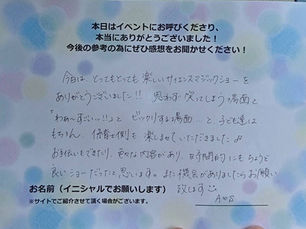 本日はイベントにお呼びくださり、
本当にありがとうございました!
今後の参考の為にぜひ感想をお聞かせください!
今日は、とってもとっても楽しいサイエンスマジックショーを
ありがとうございました!! 思わず笑ってしまう場面と
「わぁ〜すごいっ!!」と ビックリする場面…と 子ども達は
もちろん、保育士側も楽しませていただきました♪
お手伝いもできたり、色々な内容があり、時間的にもちょうど
良いショーだったと思います。また機会がありましたらお願い
致します
お名前(イニシャルでお願いします)
※サイトでご紹介させて頂く場合がございます。